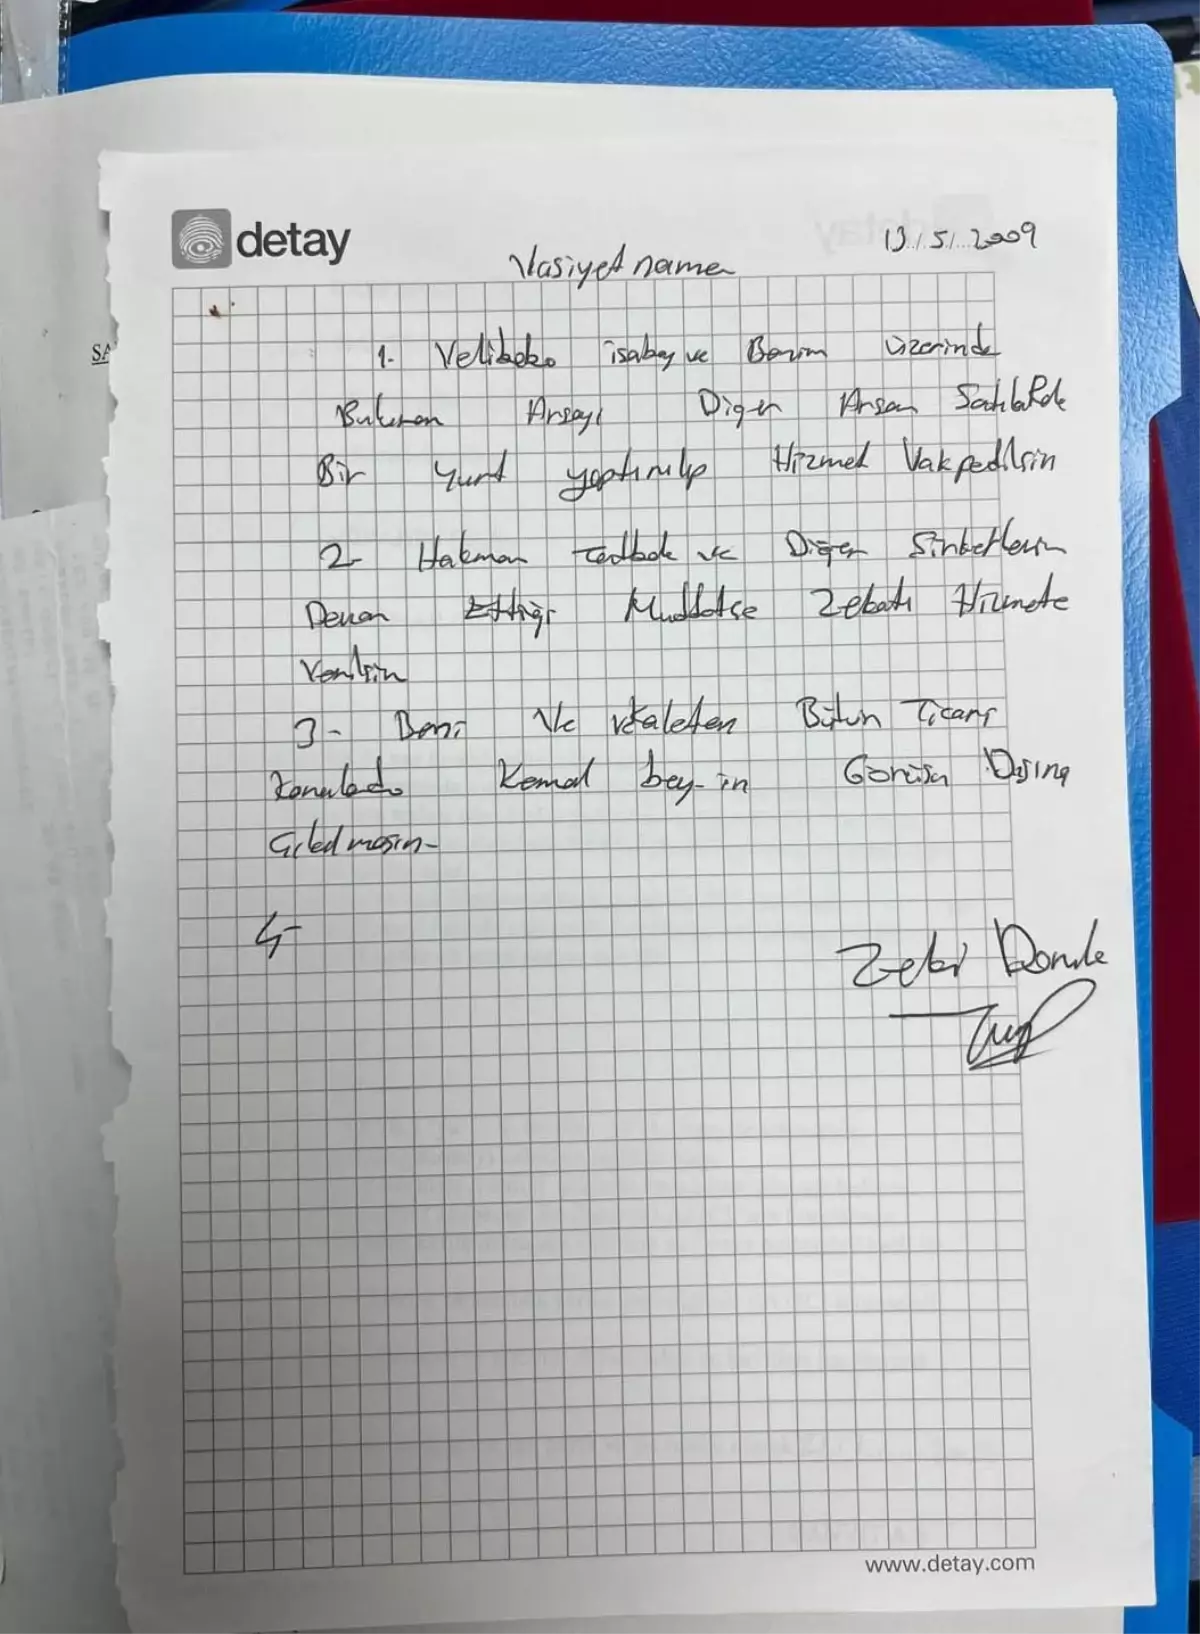 detay
13/5/2009
Vasiyetname
1- Velibaba isabey ve Benim üzerinde
Bulunan Arsayı Diğer Arsam Satılıkda
Bir Yurt yaptırılıp Hizmet Vakfedilsin
2- Hakman ve Diğer Şirketlerin
Devam Ettiği Müddetçe Zekatı Hizmete
Verilsin
3- Beni Ve vekaleten Bütün Ticari
Konularda Kemal bey-in Görüşü Dışına
Çıkılmasın-
4-
Zeki
SA
www.detay.com